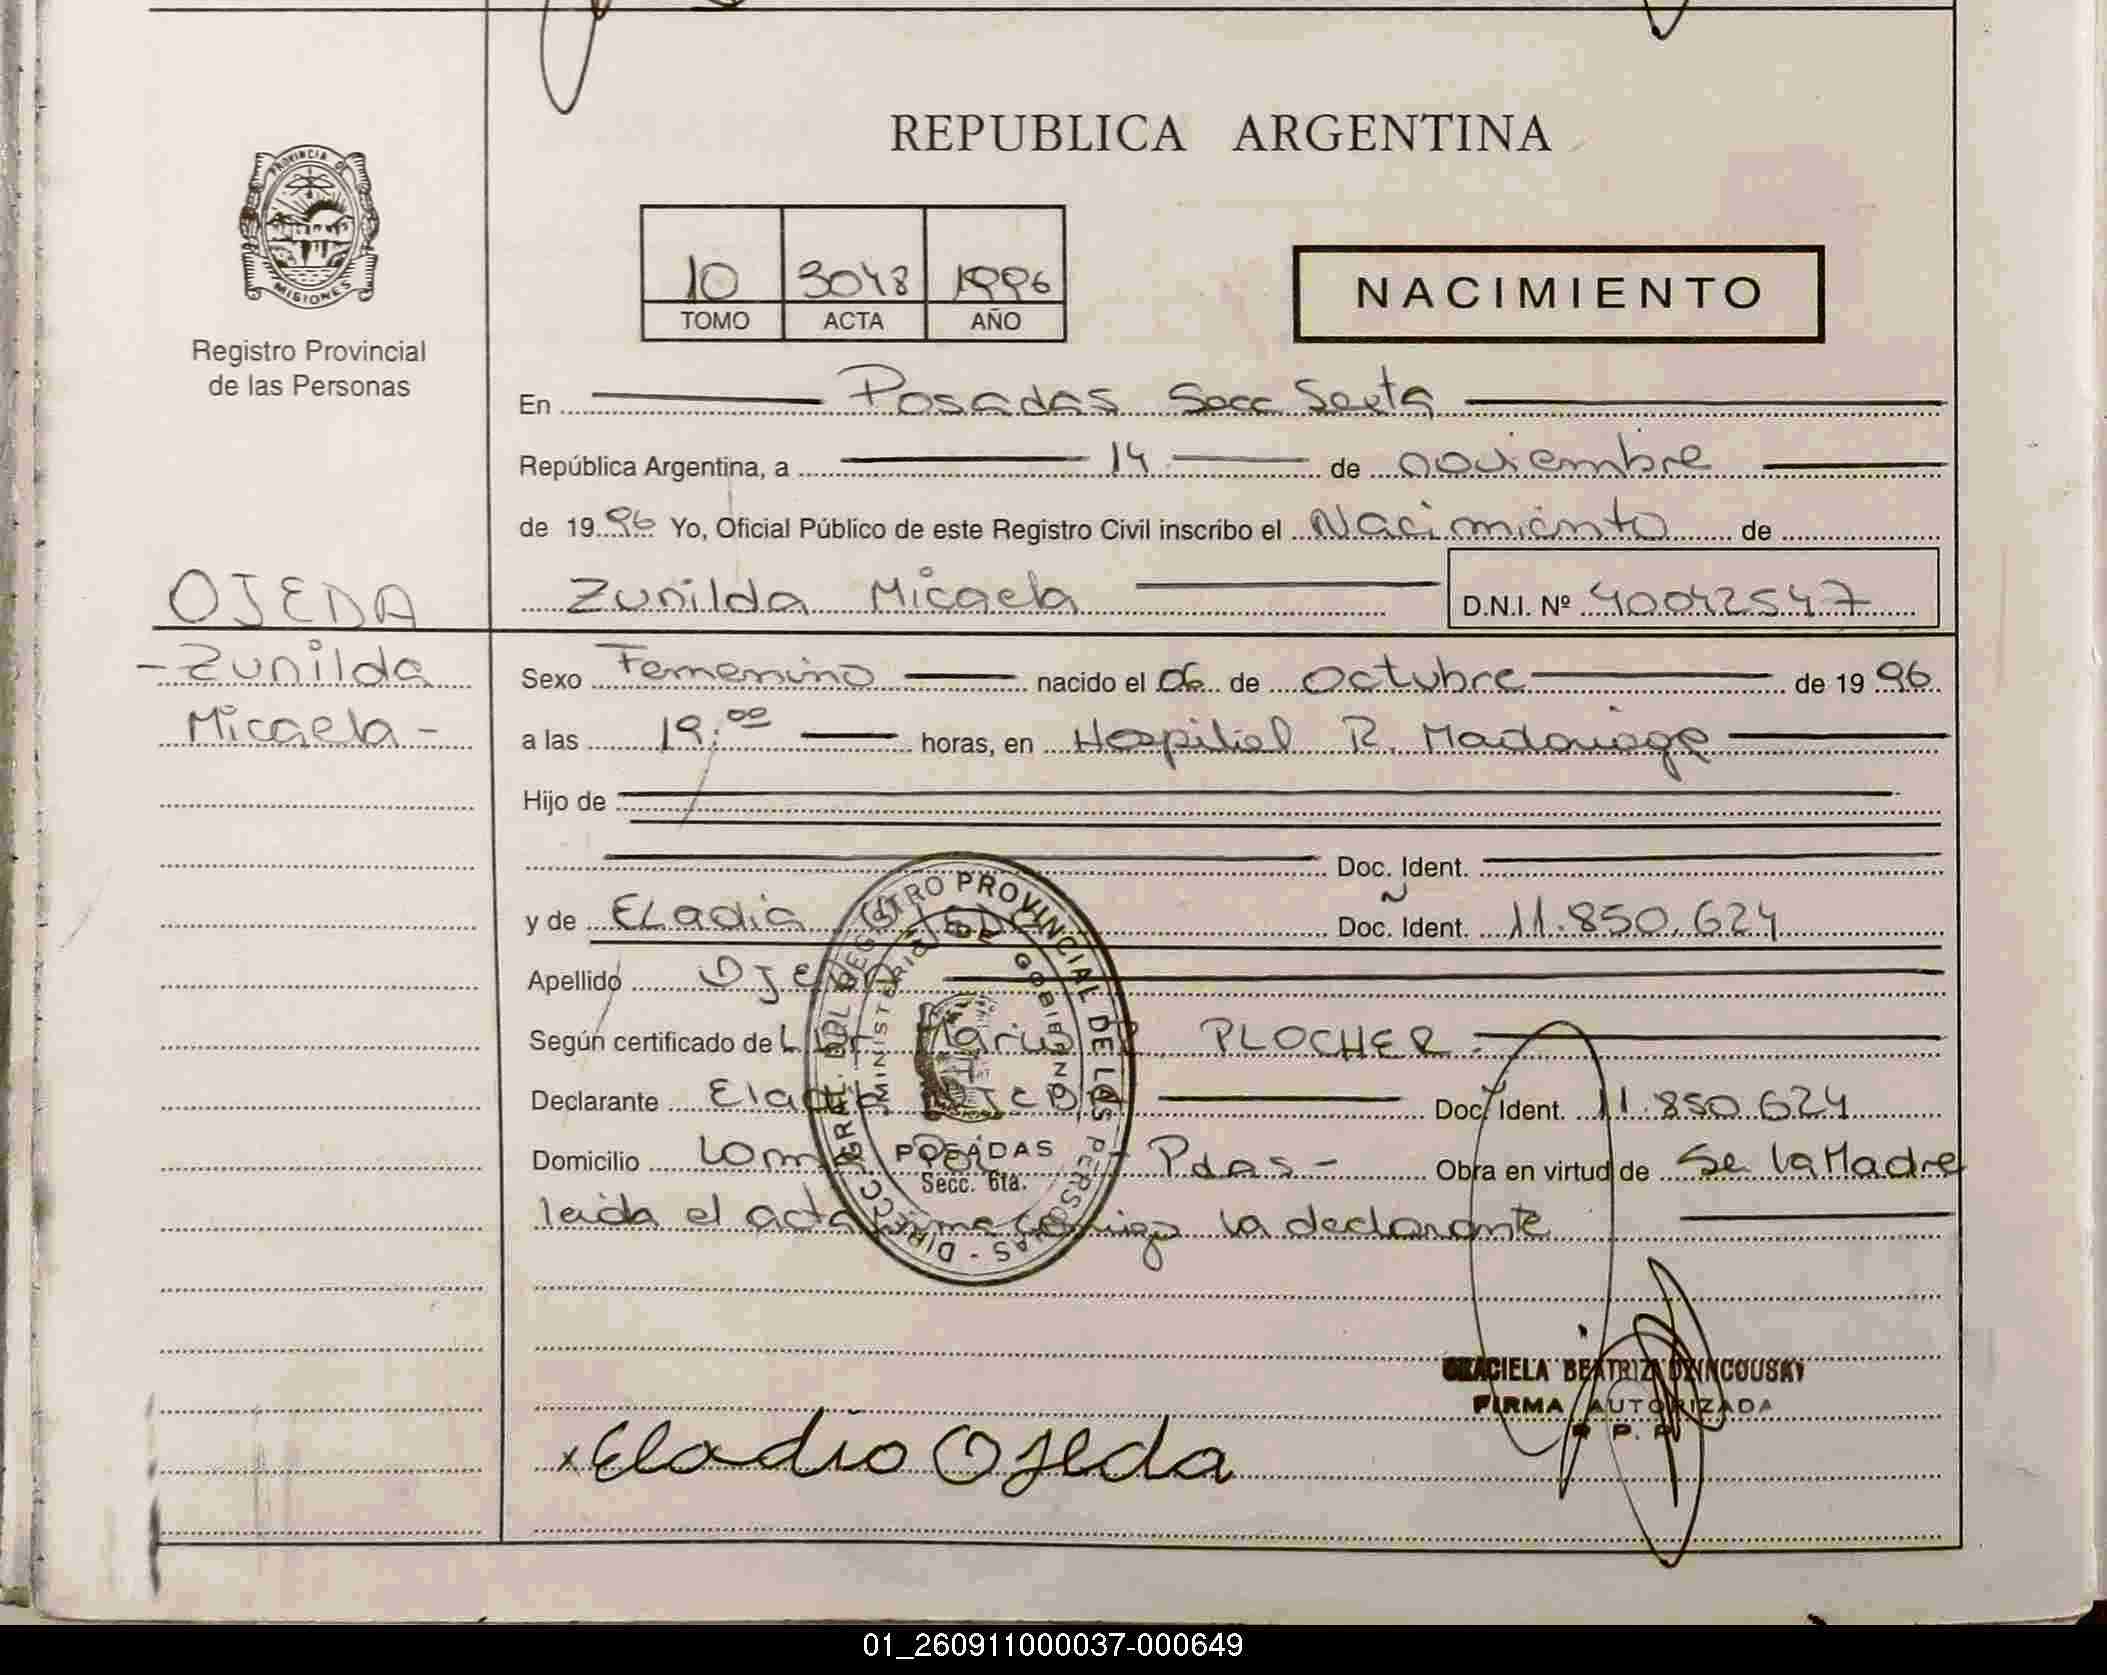 REPUBLICA ARGENTINA
PROVINCIA DE
MISIONES
Registro Provincial
de las Personas
10 3048 1996
TOMO ACTA AÑO
NACIMIENTO
En Posadas Secc Sexta
República Argentina, a 14 de noviembre
de 19 96 Yo, Oficial Público de este Registro Civil inscribo el Nacimiento de
OJEDA
Zunilda Micaela D.N.I. Nº 40042547
- Zunilda
Micaela -
Sexo Femenino nacido el 06 de Octubre de 19 96
a las 19:00 horas, en Hospital R. Madariaga
Hijo de
Doc. Ident.
y de Eladia OJEDA Doc. Ident. 11.850.624
Apellido OJEDA
Según certificado de PLOCHER
Declarante Eladia OJEDA Doc. Ident. 11.850.624
Domicilio Pdas - Obra en virtud de Se la Madre
leida el acta firma conmigo la declarante
DIRECC. GRAL. DEL REGISTRO PROVINCIAL DE LAS PERSONAS
MINISTERIO DE GOBIERNO
POSADAS
Secc. 6ta.
GRACIELA BEATRIZ
FIRMA AUTORIZADA
R. P. P.
x Eladio Ojeda
01_260911000037-000649